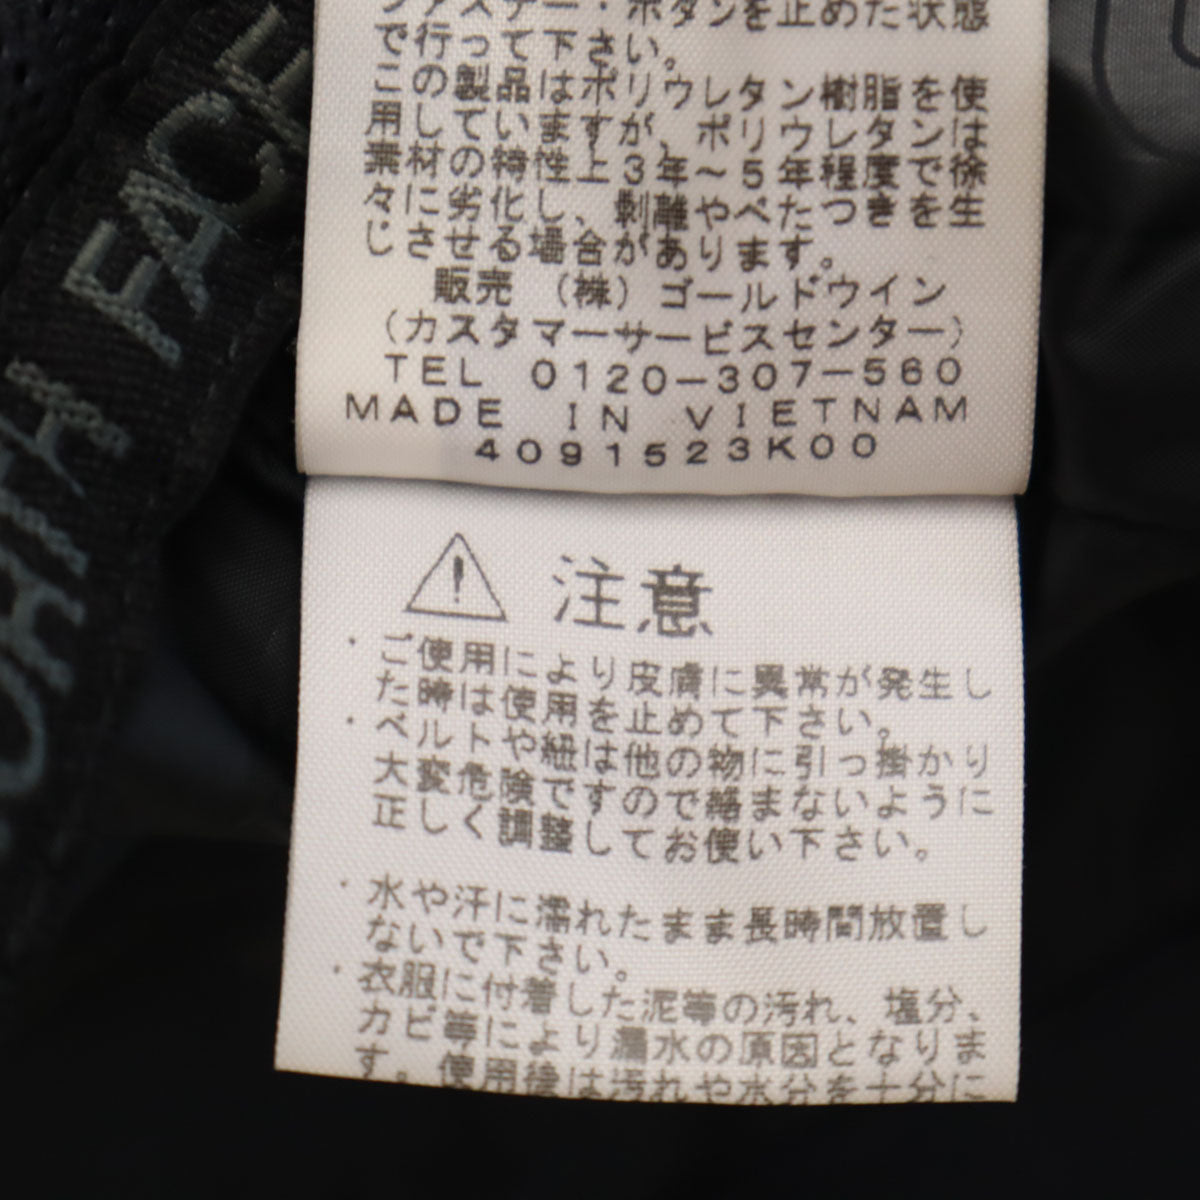 ファスナー・ボタンを止めた状態
で行って下さい。
この製品はポリウレタン樹脂を使
用していますが、ポリウレタンは
素材の特性上3年～5年程度で徐
々に劣化し、剥離やべたつきを生
じさせる場合があります。
販売 (株) ゴールドウイン
(カスタマーサービスセンター)
TEL 0120-307-560
MADE IN VIETNAM
4091523K00
注意
・ご使用により皮膚に異常が発生し
た時は使用を止めて下さい。
・ベルトや紐は他の物に引っ掛かり
大変危険ですので絡まないように
正しく調整してお使い下さい。
・水や汗に濡れたまま長時間放置し
ないで下さい。
・衣服に付着した泥等の汚れ、塩分、
カビ等により漏水の原因となりま
す。使用後は汚れや水分を十分に
NORTH FACE